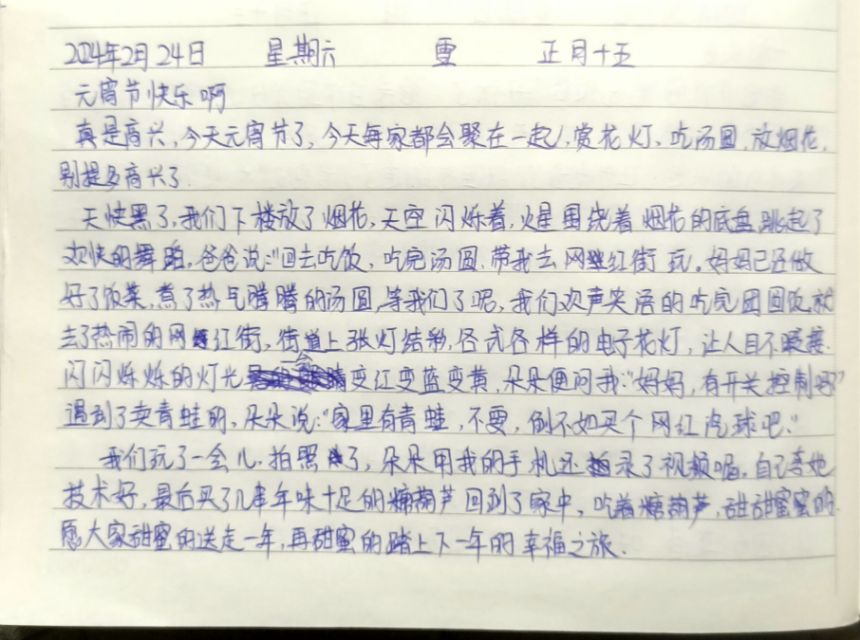 2024年2月24日 星期六 雪 正月十五
元宵节快乐啊
真是高兴,今天元宵节了,今天每家都会聚在一起,赏花灯,吃汤圆,放烟花,
别提多高兴了.
天快黑了,我们下楼放了烟花,天空闪烁着,火星围绕着烟花的底盘跳起了
欢快的舞蹈,爸爸说:"回去吃饭,吃完汤圆,带我去网红街玩。好妈已还做
好了饭菜,煮了热气腾腾的汤圆,等我们了呢,我们欢声笑语的吃完团圆饭,就
去了热闹的网红街,街道上张灯结彩,各式各样的电子花灯,让人目不暇接.
闪闪烁烁的灯光一会变红变蓝变黄,朵朵便问我:"妈妈,有开关控制吗?"
遇到了卖青蛙的,朵朵说:"家里有青蛙,不要,倒不如买个网红泡球吧."
我们玩了一会儿,拍照了,朵朵用我的手机还录了视频呢,自己夸她
技术好,最后买了几串年味十足的糖葫芦回到了家中,吃着糖葫芦,甜甜蜜蜜的.
愿大家甜蜜的送走一年,再甜蜜的踏上下一年的幸福之旅.